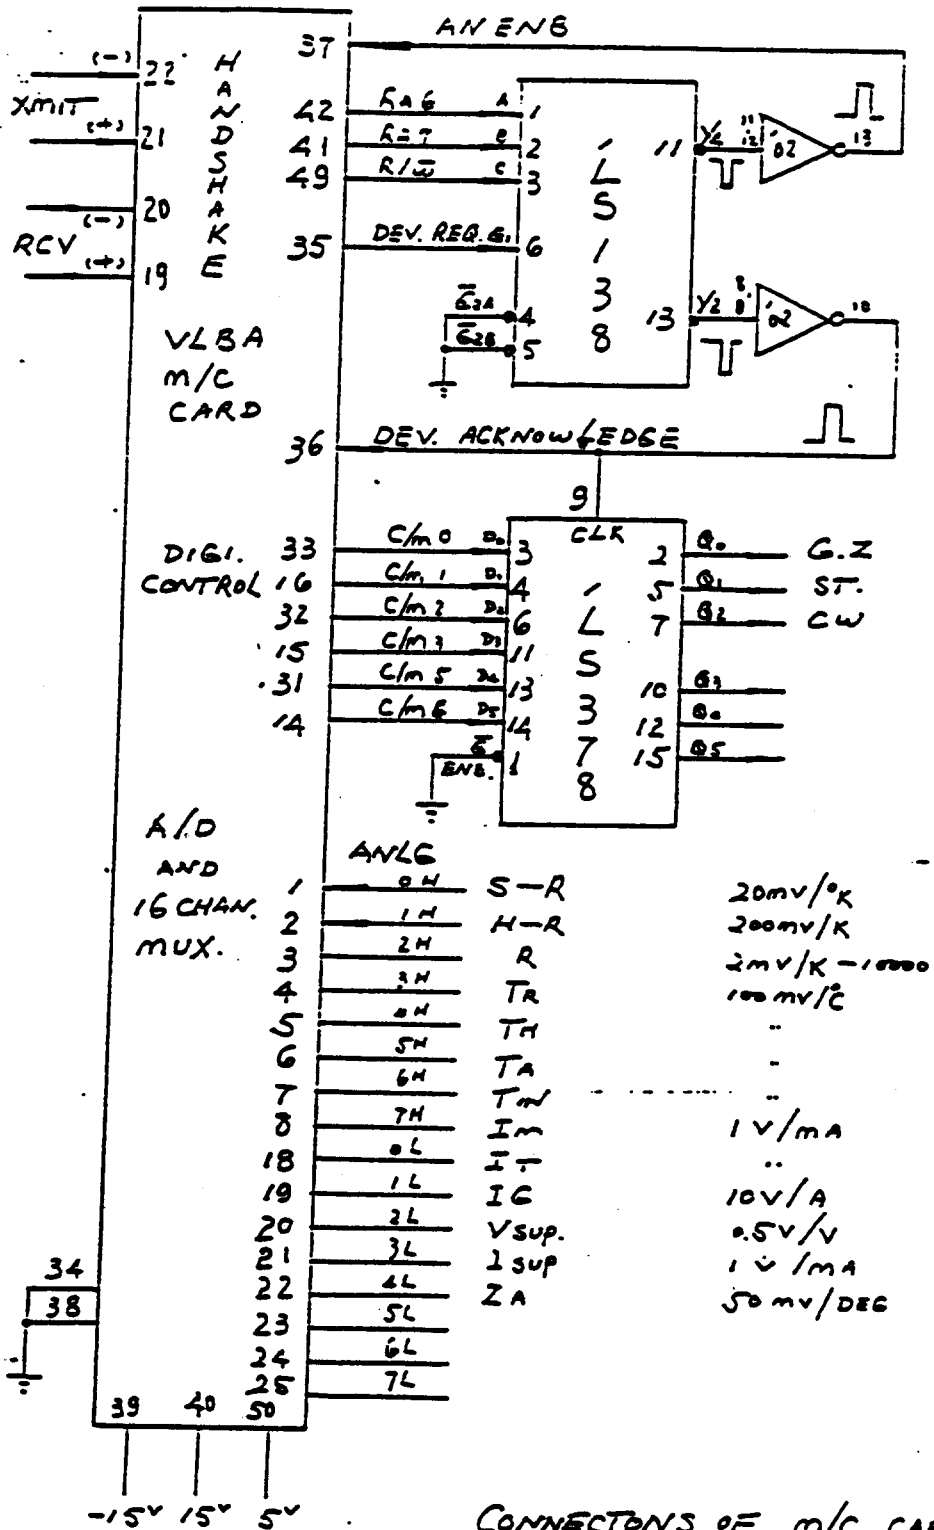 AN ENB
37
(-) 22
XMIT
(+) 21
(-) 20
RCV (+) 19
HANDSHAKE
VLBA
M/C
CARD
42 RA6 A 1
41 B 2
49 R/W̅ C 3
35 DEV. REQ. G1 6
G̅2A 4
G̅2B 5
'LS138
11 Y4 11 12 '02 13
13 Y2 '02
36 DEV. ACKNOWLEDGE
9
CLK
DIGI.
CONTROL
33 C/M 0 D0 3
16 C/M 1 D1 4
32 C/M 2 D2 6
15 C/M 3 D3 11
31 C/M 5 D4 13
14 C/M 6 D5 14
G̅ 1
ENB.
'LS378
2 Q0 G.Z
5 Q1 ST.
7 Q2 CW
10 Q3
12 Q4
15 Q5
A/D
AND
16 CHAN.
MUX.
ANLG
1 0H S-R 20mV/°K
2 1H H-R 200mV/K
3 2H R 2mV/K -10000
4 3H TR 100mV/°C
5 4H TH "
6 5H TA "
7 6H TIN "
8 7H Im 1 V/mA
18 0L "
19 1L IG 10V/A
20 2L VSUP. 0.5V/V
21 3L ISUP 1 V/mA
22 4L ZA 50 mV/DEG
23 5L
24 6L
25 7L
34
38
39 40 50
-15V 15V 5V
CONNECTONS OF M/C CAR